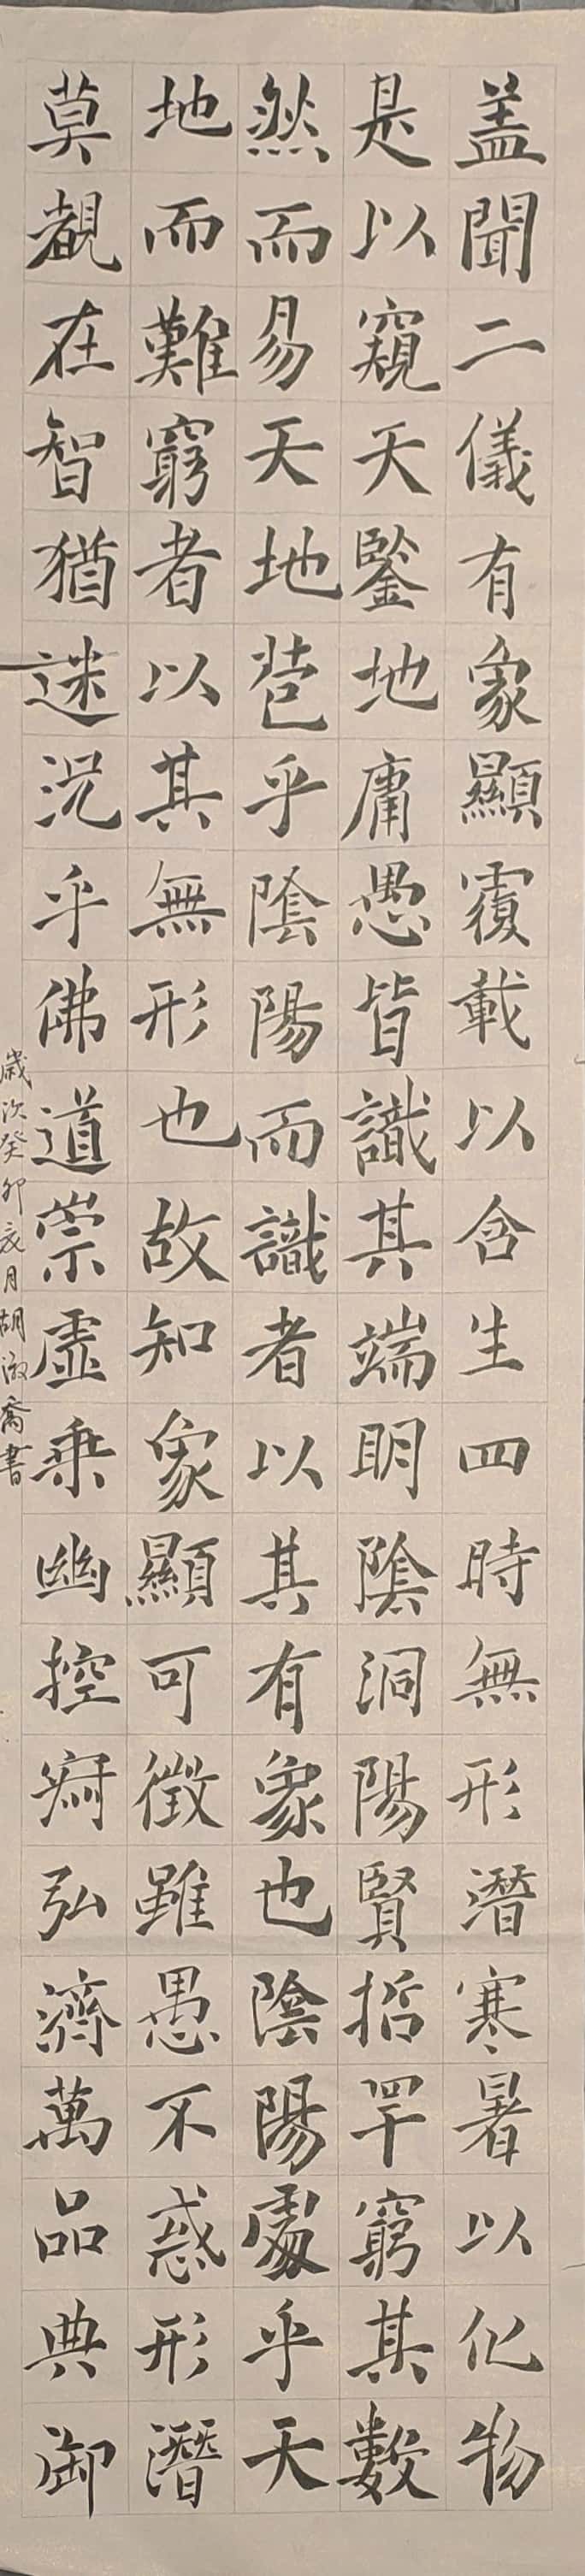 盖聞二儀有象顯覆載以含生四時無形潛寒暑以化物
是以窺天鑒地庸愚皆識其端明陰洞陽賢哲罕窮其數
然而易天地苞乎陰陽而識者以其有象也陰陽處乎天
地而難窮者以其無形也故知象顯可徵雖愚不惑形潛
莫覩在智猶迷況乎佛道崇虛乘幽控寂弘濟萬品典御
歲次癸卯亥月胡淑喬書